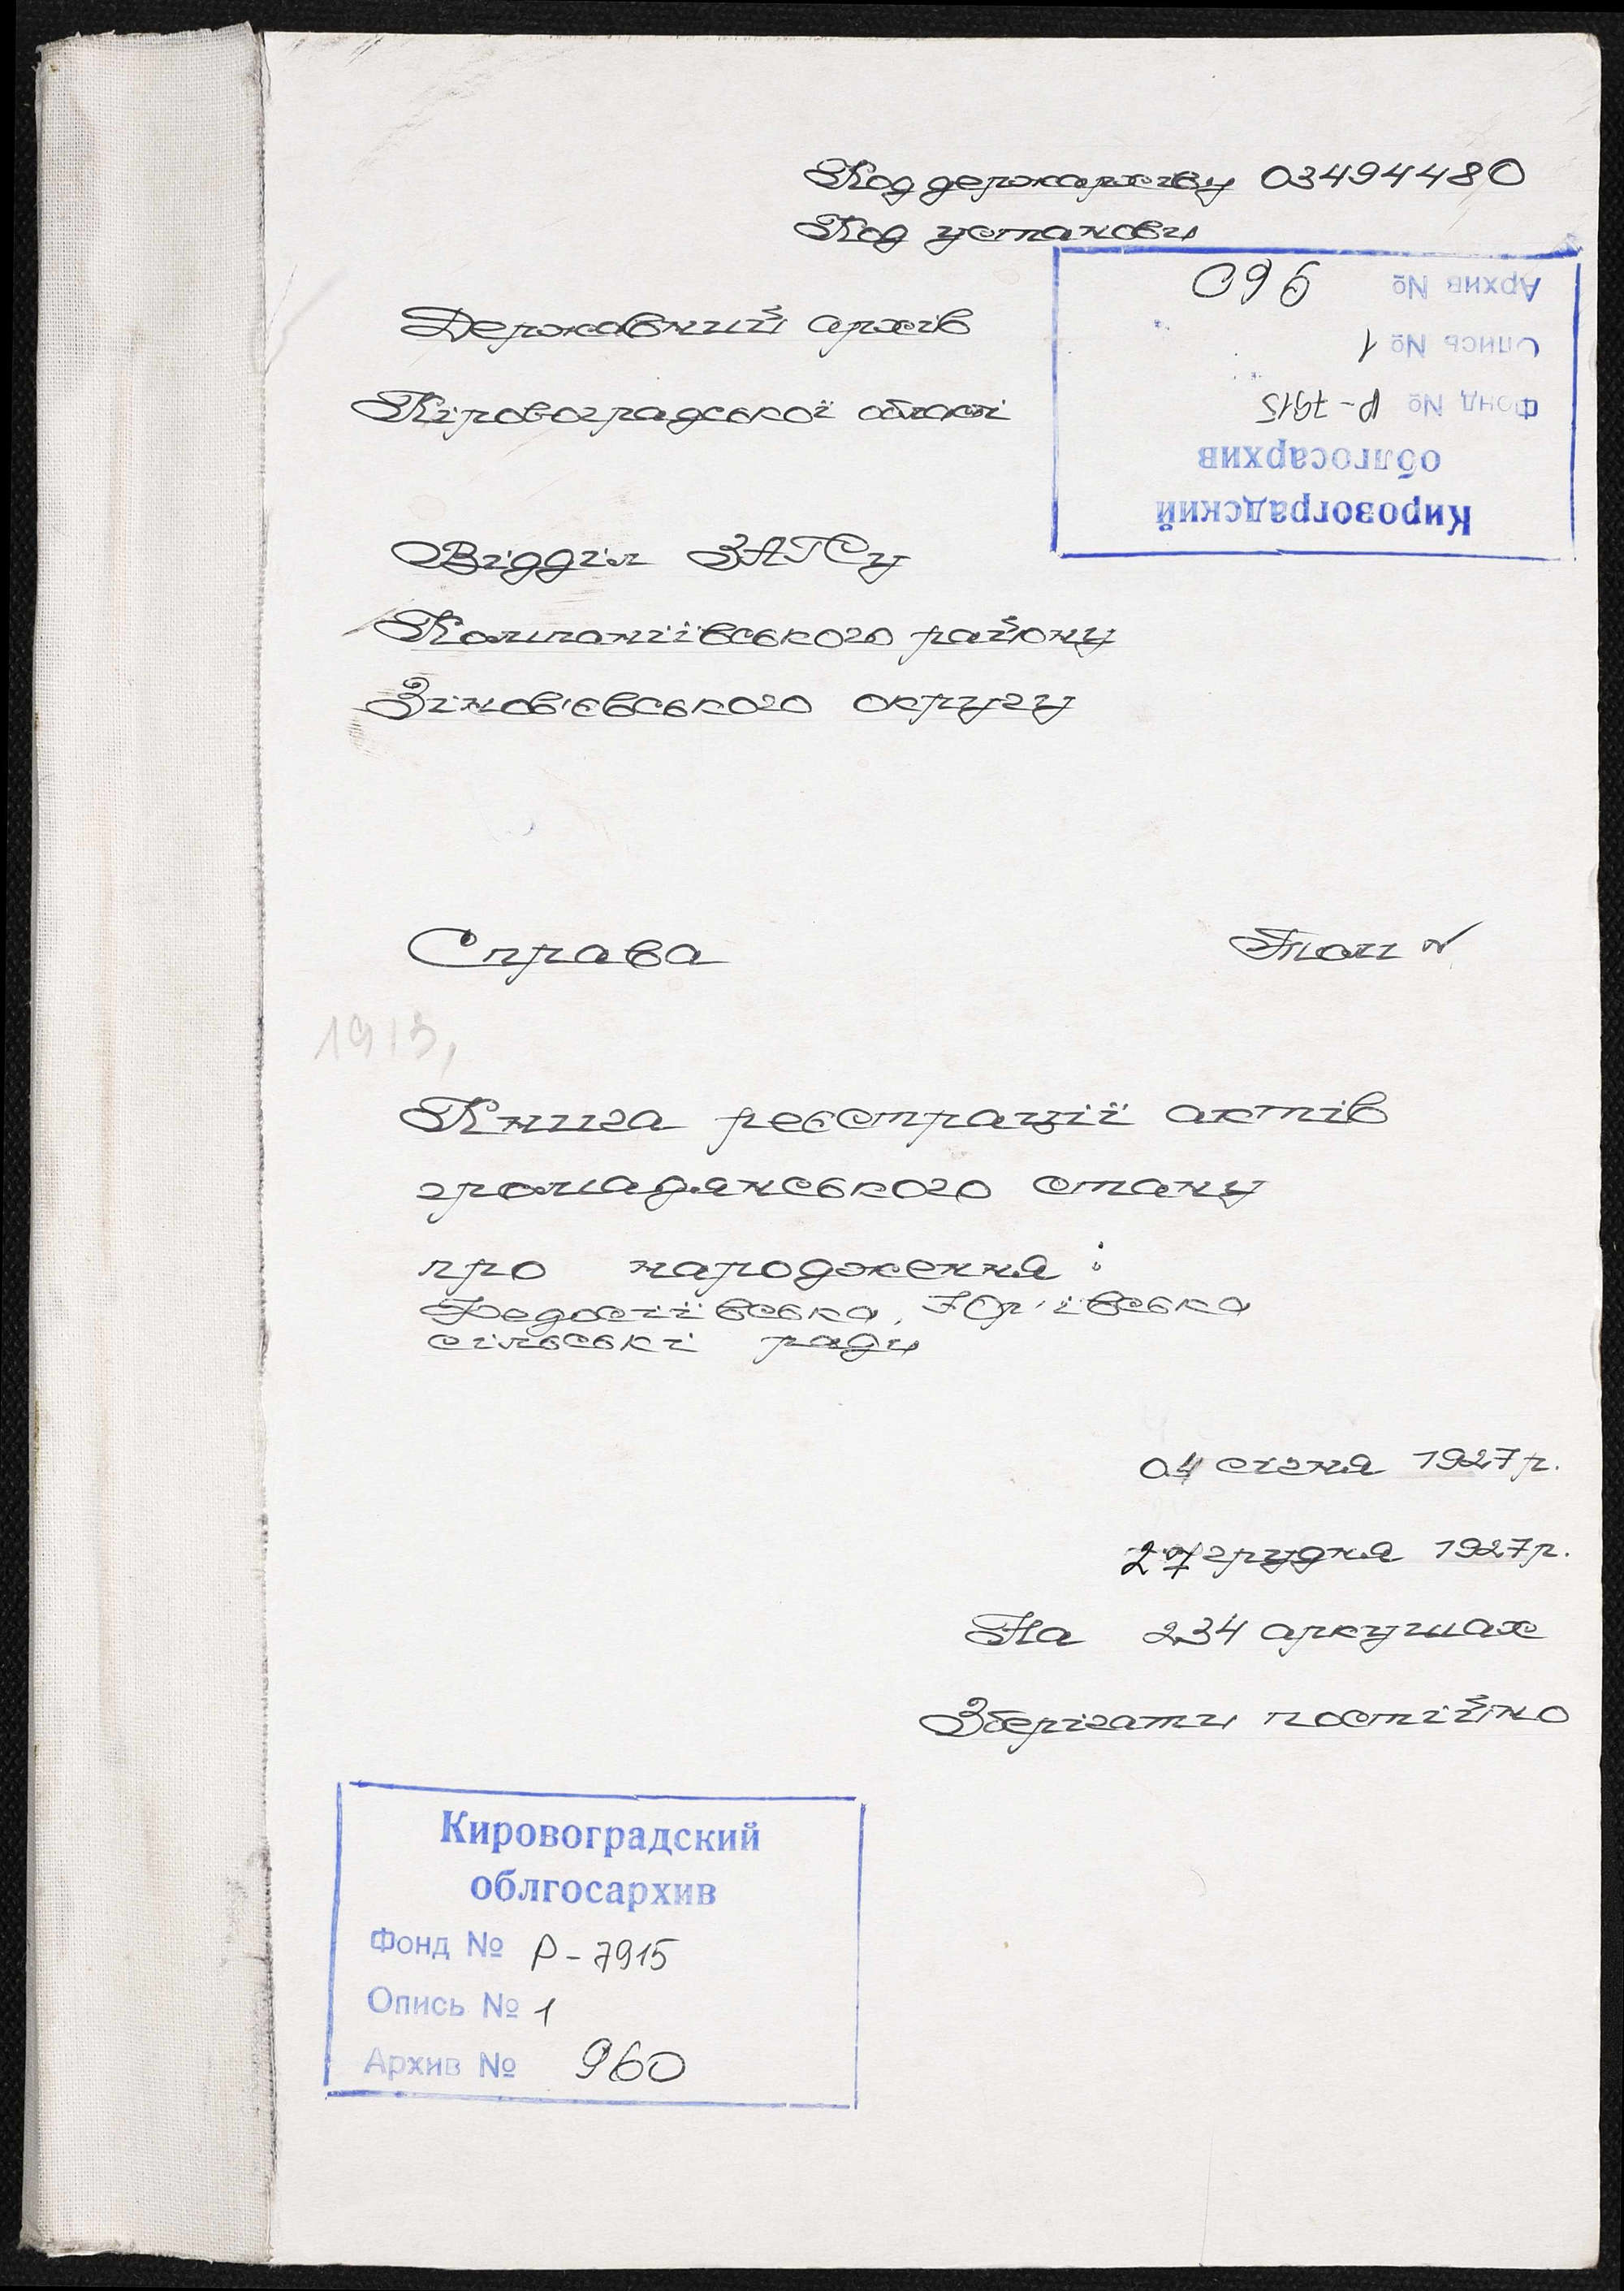 Код держархіву 03494480
Код установи
Архив № 960
Опись № 1
Фонд № Р-7915
облгосархив
Кировоградский
Державний архів
Кіровоградської області
Відділ ЗАГСу
Компаніївського району
Зінов'євського округу
Справа Том №
1913,
Книга реєстрації актів
громадянського стану
про народження :
Федосіївська, Юр'ївська
сільські ради
04 січня 1927р.
27 грудня 1927р.
На 234 аркушах
Зберігати постійно
Кировоградский
облгосархив
Фонд № Р-7915
Опись № 1
Архив № 960